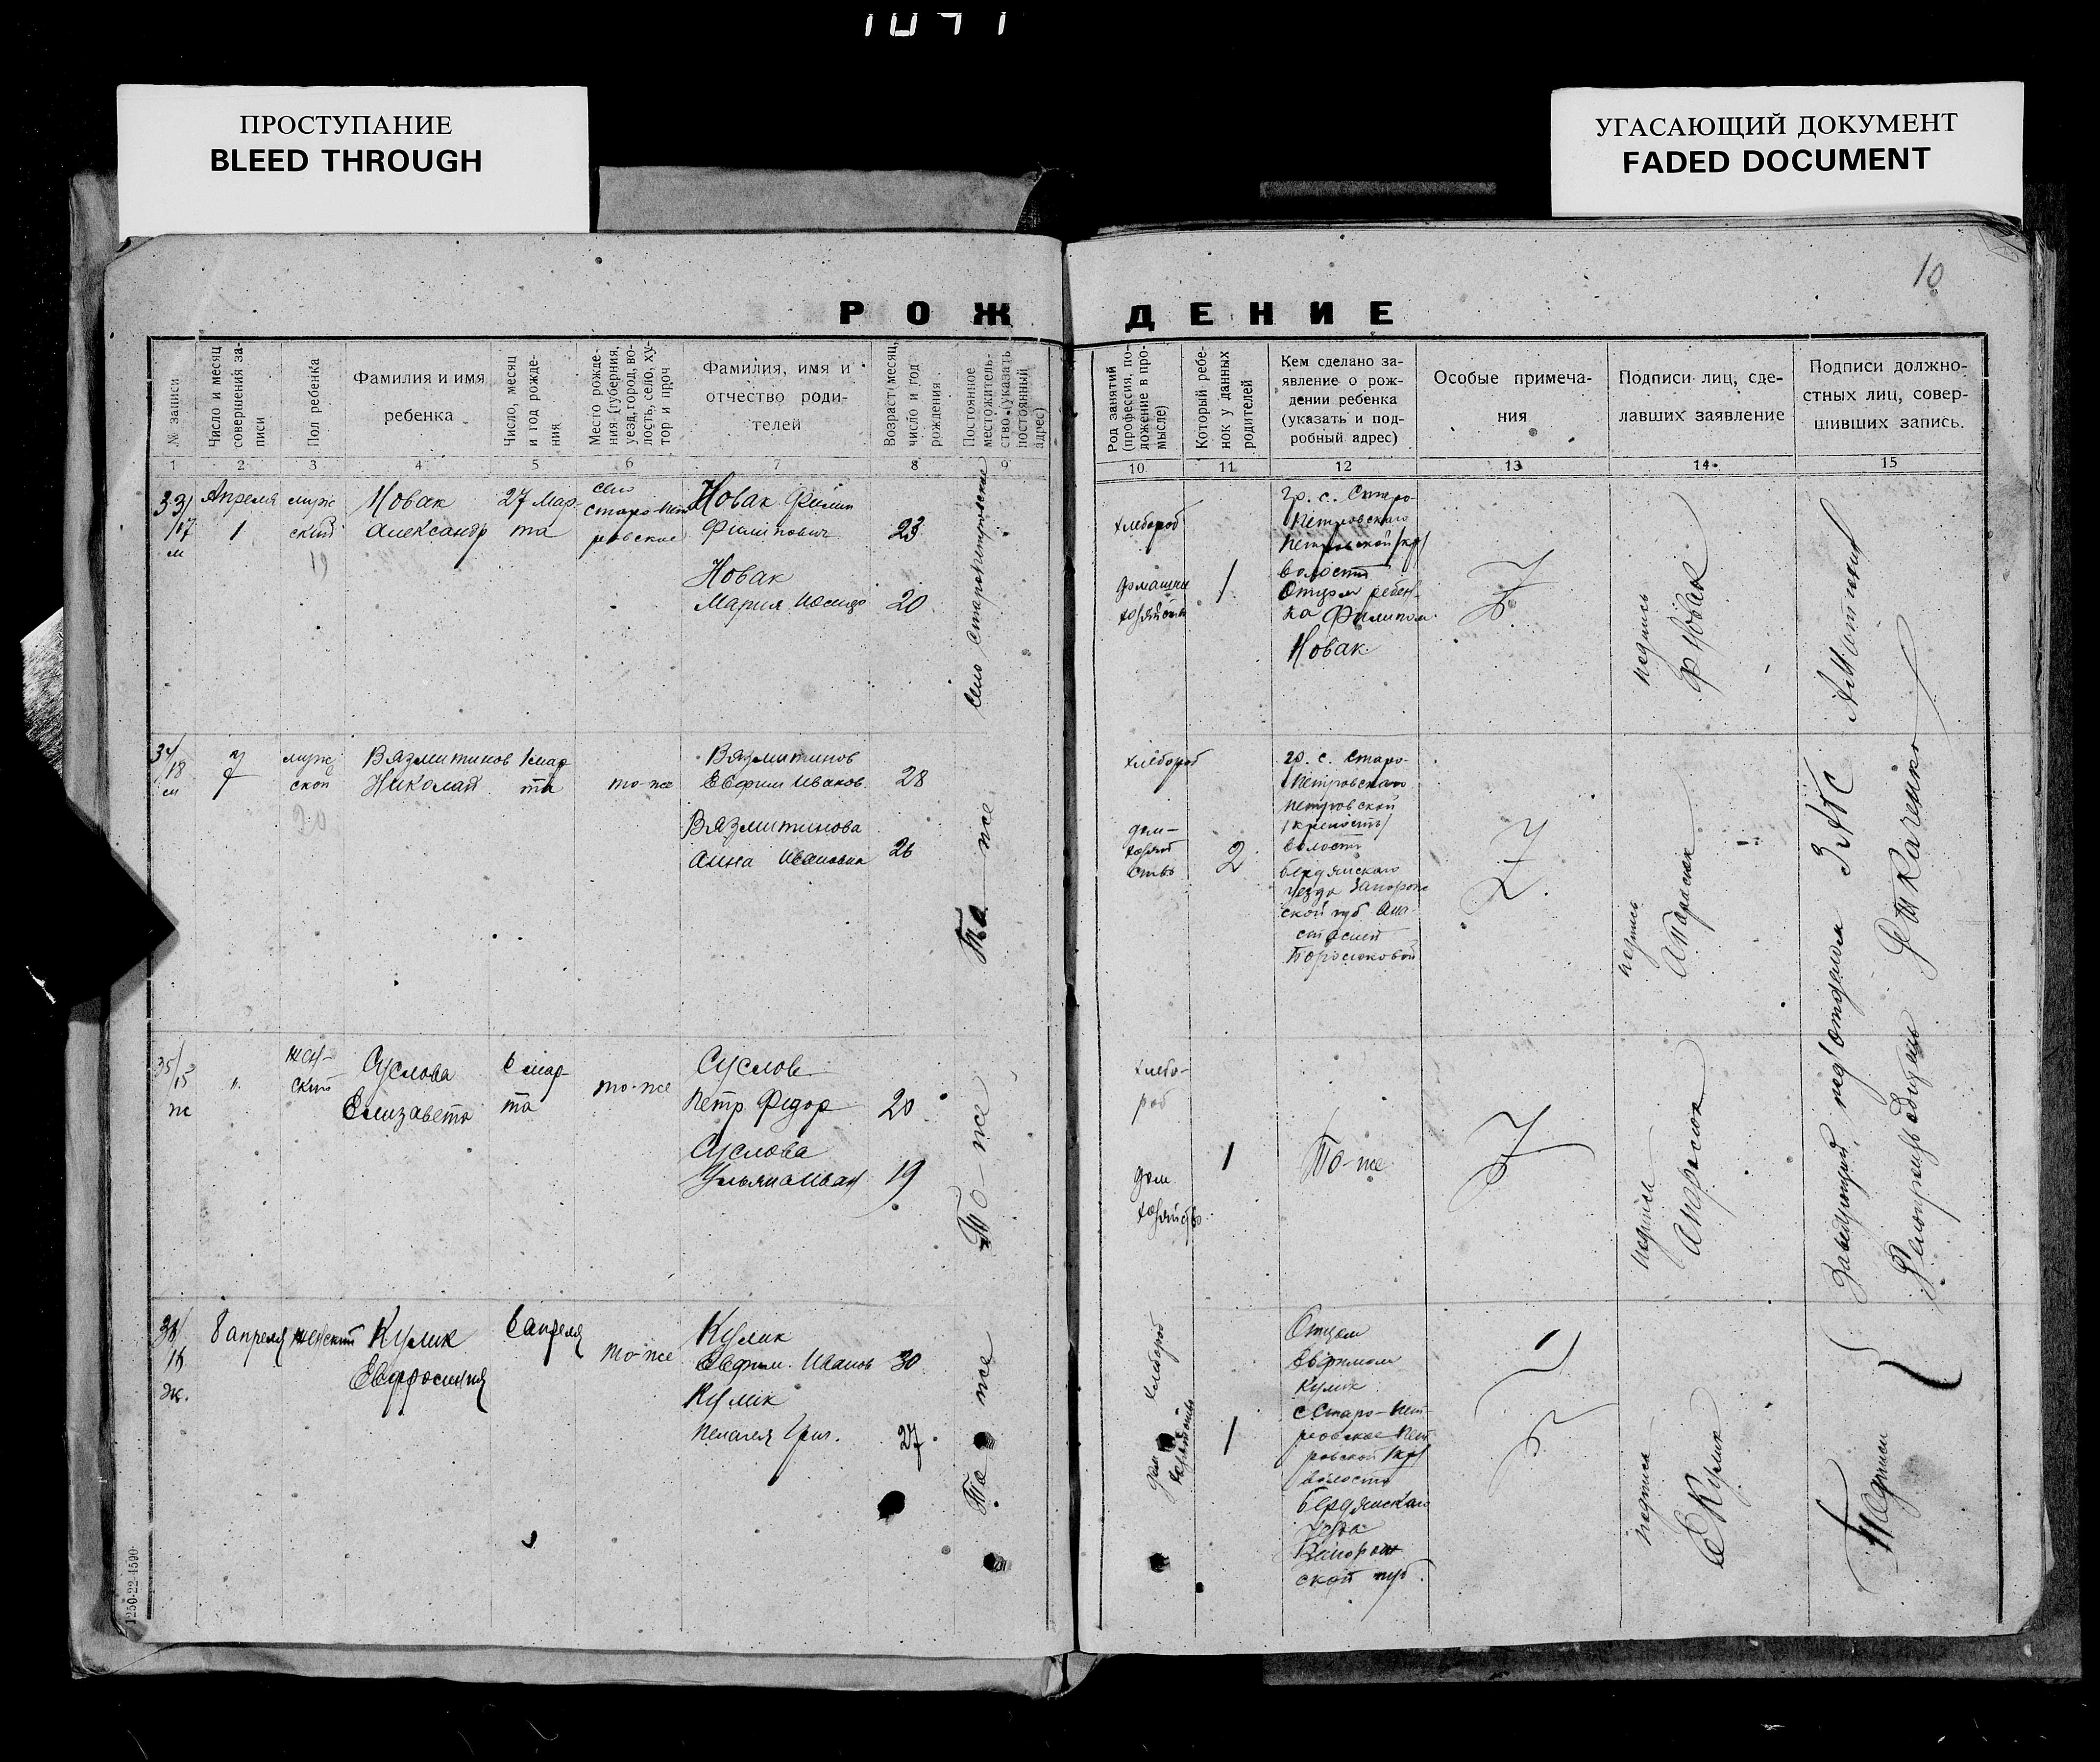 1041
ПРОСТУПАНИЕ
BLEED THROUGH
УГАСАЮЩИЙ ДОКУМЕНТ
FADED DOCUMENT
10
РОЖДЕНИЕ
№ записи
Число и месяц совершения записи
Пол ребенка
Фамилия и имя
ребенка
Число, месяц
и год рожде-
ния
Место рожде-
ния (губерния,
уезд, город, во-
лость, село, ху-
тор и проч
Фамилия, имя и
отчество роди-
телей
Возраст месяц,
число и год
рождения
Постоянное
местожитель-
ство (указать
постоянный
адрес)
Род занятий
(профессия, по-
ложение в про-
мысле)
Который ребе-
нок у данных
родителей
Кем сделано за-
явление о рож-
дении ребенка
(указать и под-
робный адрес)
Особые примеча-
ния
Подписи лиц, сде-
лавших заявление
Подписи должно-
стных лиц, совер-
шивших запись.
1 2 3 4 5 6 7 8 9 10 11 12 13 14 15
33/
17
м
Апреля
1
мужс
кий
19
Новак
Александр
27 Мар-
та
село
Старо-Пет
ровское
Новак Филип
Филипович
23
Новак
Мария Иосифо
20
село Старопетровское
хлебороб
домашне
хозяйств
1
гр. с. Старо-
Петровскаго
Петровской /кр/
волости
Отцом ребен-
ка Филипом
Новак
подпись
Ф Новак
34/
18
м
7
муж
ской
20
Вязмитинов
Николай
1 мар
та
то-же
Вязмитинов
Евфим Иванов
28
Вязмитинова
Анна Ивановна
26
То же
хлебороб
дом-
хозяй
ство
2
гр. с. Старо-
Петровскаго
Петровской
/крепость/
волости
Бердянскаго
уезда Запорож
ской губ Ана-
стасией
Порасюковой
подпись
А Парасюк
35/
15
ж
"
жен-
ский
Суслова
Елизавета
6 мар-
та
то-же
Суслов
Петр Федор
20
Суслова
Ульяна Иван
19
То-же
хлебо-
роб
дом
хозяйство
1
То-же
подпись
А Парасюк
36/
16
ж.
8 апреля
женский
Кулик
Евфросиния
6 апреля
то-же
Кулик
Евфим. Иванов
30
Кулик
Пелагея Григ.
27
То же
хлебороб
дом
хозяйство
1
Отцом
Евфимом
Кулик
с Старо-Пет-
ровское Пет
ровской /кр/
волости
Бердянскаго
уезда
Запорож
ской губ.
подпись
Е Кулик
Заведующий подотделом ЗАГС
Делопроизводитель Ткаченко
Подписи
1250-22-4590